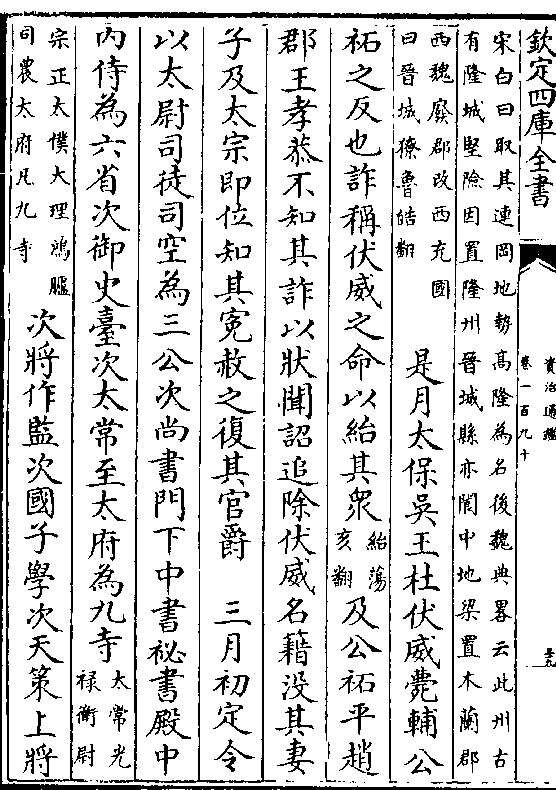 欽定四庫全書
資治通鑑
卷一百九十
宋白曰取其連岡地勢髙隆為名後魏典畧云此州古
有隆城堅險因置隆州晉城縣亦閬中地梁置木蘭郡
西魏廢郡改西充國
曰晉城獠魯皓翻
是月太保吳王杜伏威薨輔公
祏之反也詐稱伏威之命以紿其衆
紿蕩
亥翻
及公祏平趙
郡王孝恭不知其詐以狀聞詔追除伏威名籍没其妻
子及太宗即位知其寃赦之復其官爵　三月初定令
以太尉司徒司空為三公次尚書門下中書祕書殿中
内侍為六省次御史臺次太常至太府為九寺
太常光
禄衛尉
宗正太僕大理鴻臚
司農太府凡九寺
次將作監次國子學次天策上將